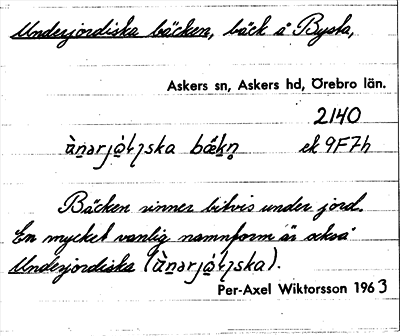 Underjordiska bäcken, bäck å Bysta,
Askers sn, Askers hd, Örebro län.
2140
ek 9F7h
Bäcken rinner bitvis under jord.
En mycket vanlig namnform är också
Underjordiska
Per-Axel Wiktorsson 1963